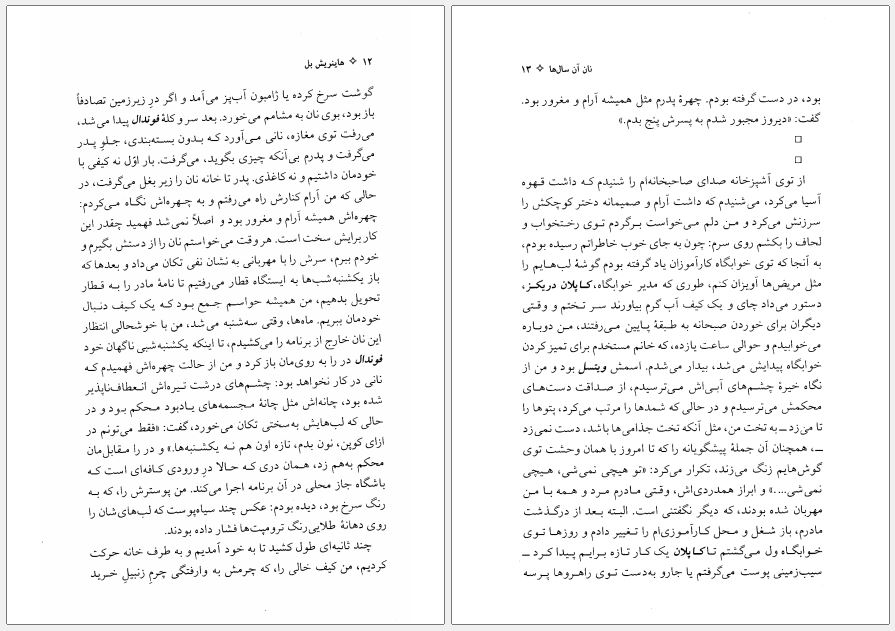 ۱۲ ✧ هاینریش بل
گوشت سرخ کرده یا ژامبون آب‌پز می‌آمد و اگر درِ زیرزمین تصادفاً
باز بود، بوی نان به مشامم می‌خورد. بعد سر و کلهٔ فوندال پیدا می‌شد،
می‌رفت توی مغازه، نانی می‌آورد که بدون بسته‌بندی، جلوِ پدر
می‌گرفت و پدرم بی‌آنکه چیزی بگوید، می‌گرفت. بار اوّل نه کیفی با
خودمان داشتیم و نه کاغذی. پدر تا خانه نان را زیر بغل می‌گرفت، در
حالی که من آرام کنارش راه می‌رفتم و به چهره‌اش نگاه می‌کردم:
چهره‌اش همیشه آرام و مغرور بود و اصلاً نمی‌شد فهمید چقدر این
کار برایش سخت است. هر وقت می‌خواستم نان را از دستش بگیرم و
خودم ببرم، سرش را با مهربانی به نشان نفی تکان می‌داد و بعدها که
باز یکشنبه‌شب‌ها به ایستگاه قطار می‌رفتیم تا نامهٔ مادر را به قطار
تحویل بدهیم، من همیشه حواسم جمع بود که یک کیف دنبال
خودمان ببریم. ماه‌ها، وقتی سه‌شنبه می‌شد، من با خوشحالی انتظار
این نان خارج از برنامه را می‌کشیدم، تا اینکه یکشنبه‌شبی ناگهان خود
فوندال در را به روی‌مان باز کرد و من از حالت چهره‌اش فهمیدم که
نانی در کار نخواهد بود: چشم‌های درشت تیره‌اش انعطاف‌ناپذیر
شده بود، چانه‌اش مثل چانهٔ مجسمه‌های یادبود محکم بود و در
حالی که لب‌هایش به‌سختی تکان می‌خورد، گفت: «فقط می‌تونم در
ازای کوپن، نون بدم، تازه اون هم نه یکشنبه‌ها.» و در را مقابل‌مان
محکم به‌هم زد، همان دری که حالا درِ ورودی کافه‌ای است که
باشگاه جاز محلی در آن برنامه اجرا می‌کند. من پوسترش را، که به
رنگ سرخ بود، دیده بودم: عکس چند سیاه‌پوست که لب‌های‌شان را
روی دهانهٔ طلایی‌رنگ ترومپت‌ها فشار داده بودند.
چند ثانیه‌ای طول کشید تا به خود آمدیم و به طرف خانه حرکت
کردیم، من کیف خالی را، که چرمش به وارفتگی چرمِ زنبیلِ خرید
نان آن سال‌ها ✧ ۱۳
بود، در دست گرفته بودم. چهرهٔ پدرم مثل همیشه آرام و مغرور بود.
گفت: «دیروز مجبور شدم به پسرش پنج بدم.»
□
□
از توی آشپزخانه صدای صاحبخانه‌ام را شنیدم که داشت قهوه
آسیا می‌کرد، می‌شنیدم که داشت آرام و صمیمانه دختر کوچکش را
سرزنش می‌کرد و من دلم می‌خواست برگردم توی رختخواب و
لحاف را بکشم روی سرم: چون به جای خوب خاطراتم رسیده بودم،
به آنجا که توی خوابگاه کارآموزان یاد گرفته بودم گوشهٔ لب‌هایم را
مثل مریض‌ها آویزان کنم، طوری که مدیر خوابگاه، کاپلان دریکز،
دستور می‌داد چای و یک کیف آب گرم بیاورند سر تختم و وقتی
دیگران برای خوردن صبحانه به طبقهٔ پایین می‌رفتند، من دوباره
می‌خوابیدم و حوالی ساعت یازده، که خانم مستخدم برای تمیز کردن
خوابگاه پیدایش می‌شد، بیدار می‌شدم. اسمش ویتسل بود و من از
نگاه خیرهٔ چشم‌های آبی‌اش می‌ترسیدم، از صداقت دست‌های
محکمش می‌ترسیدم و در حالی که شمدها را مرتب می‌کرد، پتوها را
تا می‌زد ــ به تخت من، مثل آنکه تخت جذامی‌ها باشد، دست نمی‌زد
ــ، همچنان آن جملهٔ پیشگویانه را که تا امروز با همان وحشت توی
گوش‌هایم زنگ می‌زند، تکرار می‌کرد: «تو هیچی نمی‌شی، هیچی
نمی‌شی....» و ابراز همدردی‌اش، وقتی مادرم مرد و همه با من
مهربان شده بودند، که دیگر نگفتنی است. البته بعد از درگذشت
مادرم، باز شغل و محل کارآموزی‌ام را تغییر دادم و روزها توی
خوابگاه ول می‌گشتم تا کاپلان یک کار تازه برایم پیدا کرد ــ
سیب‌زمینی پوست می‌گرفتم یا جارو به‌دست توی راهروها پرسه